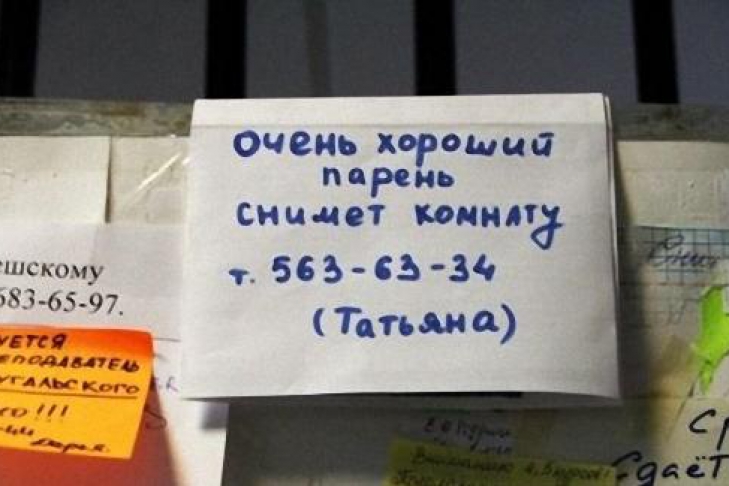 очень хороший
парень
снимет комнату
т. 563-63-34
(Татьяна)
ешскому
683-65-97.
УЕТСЯ
еподаватель
угальского
го!!!
Ср
Сдаёт